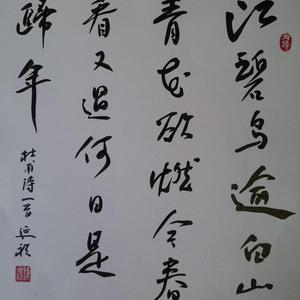 江碧鸟逾白山
青花欲燃今春
看又過何日是
歸年
杜甫诗一首